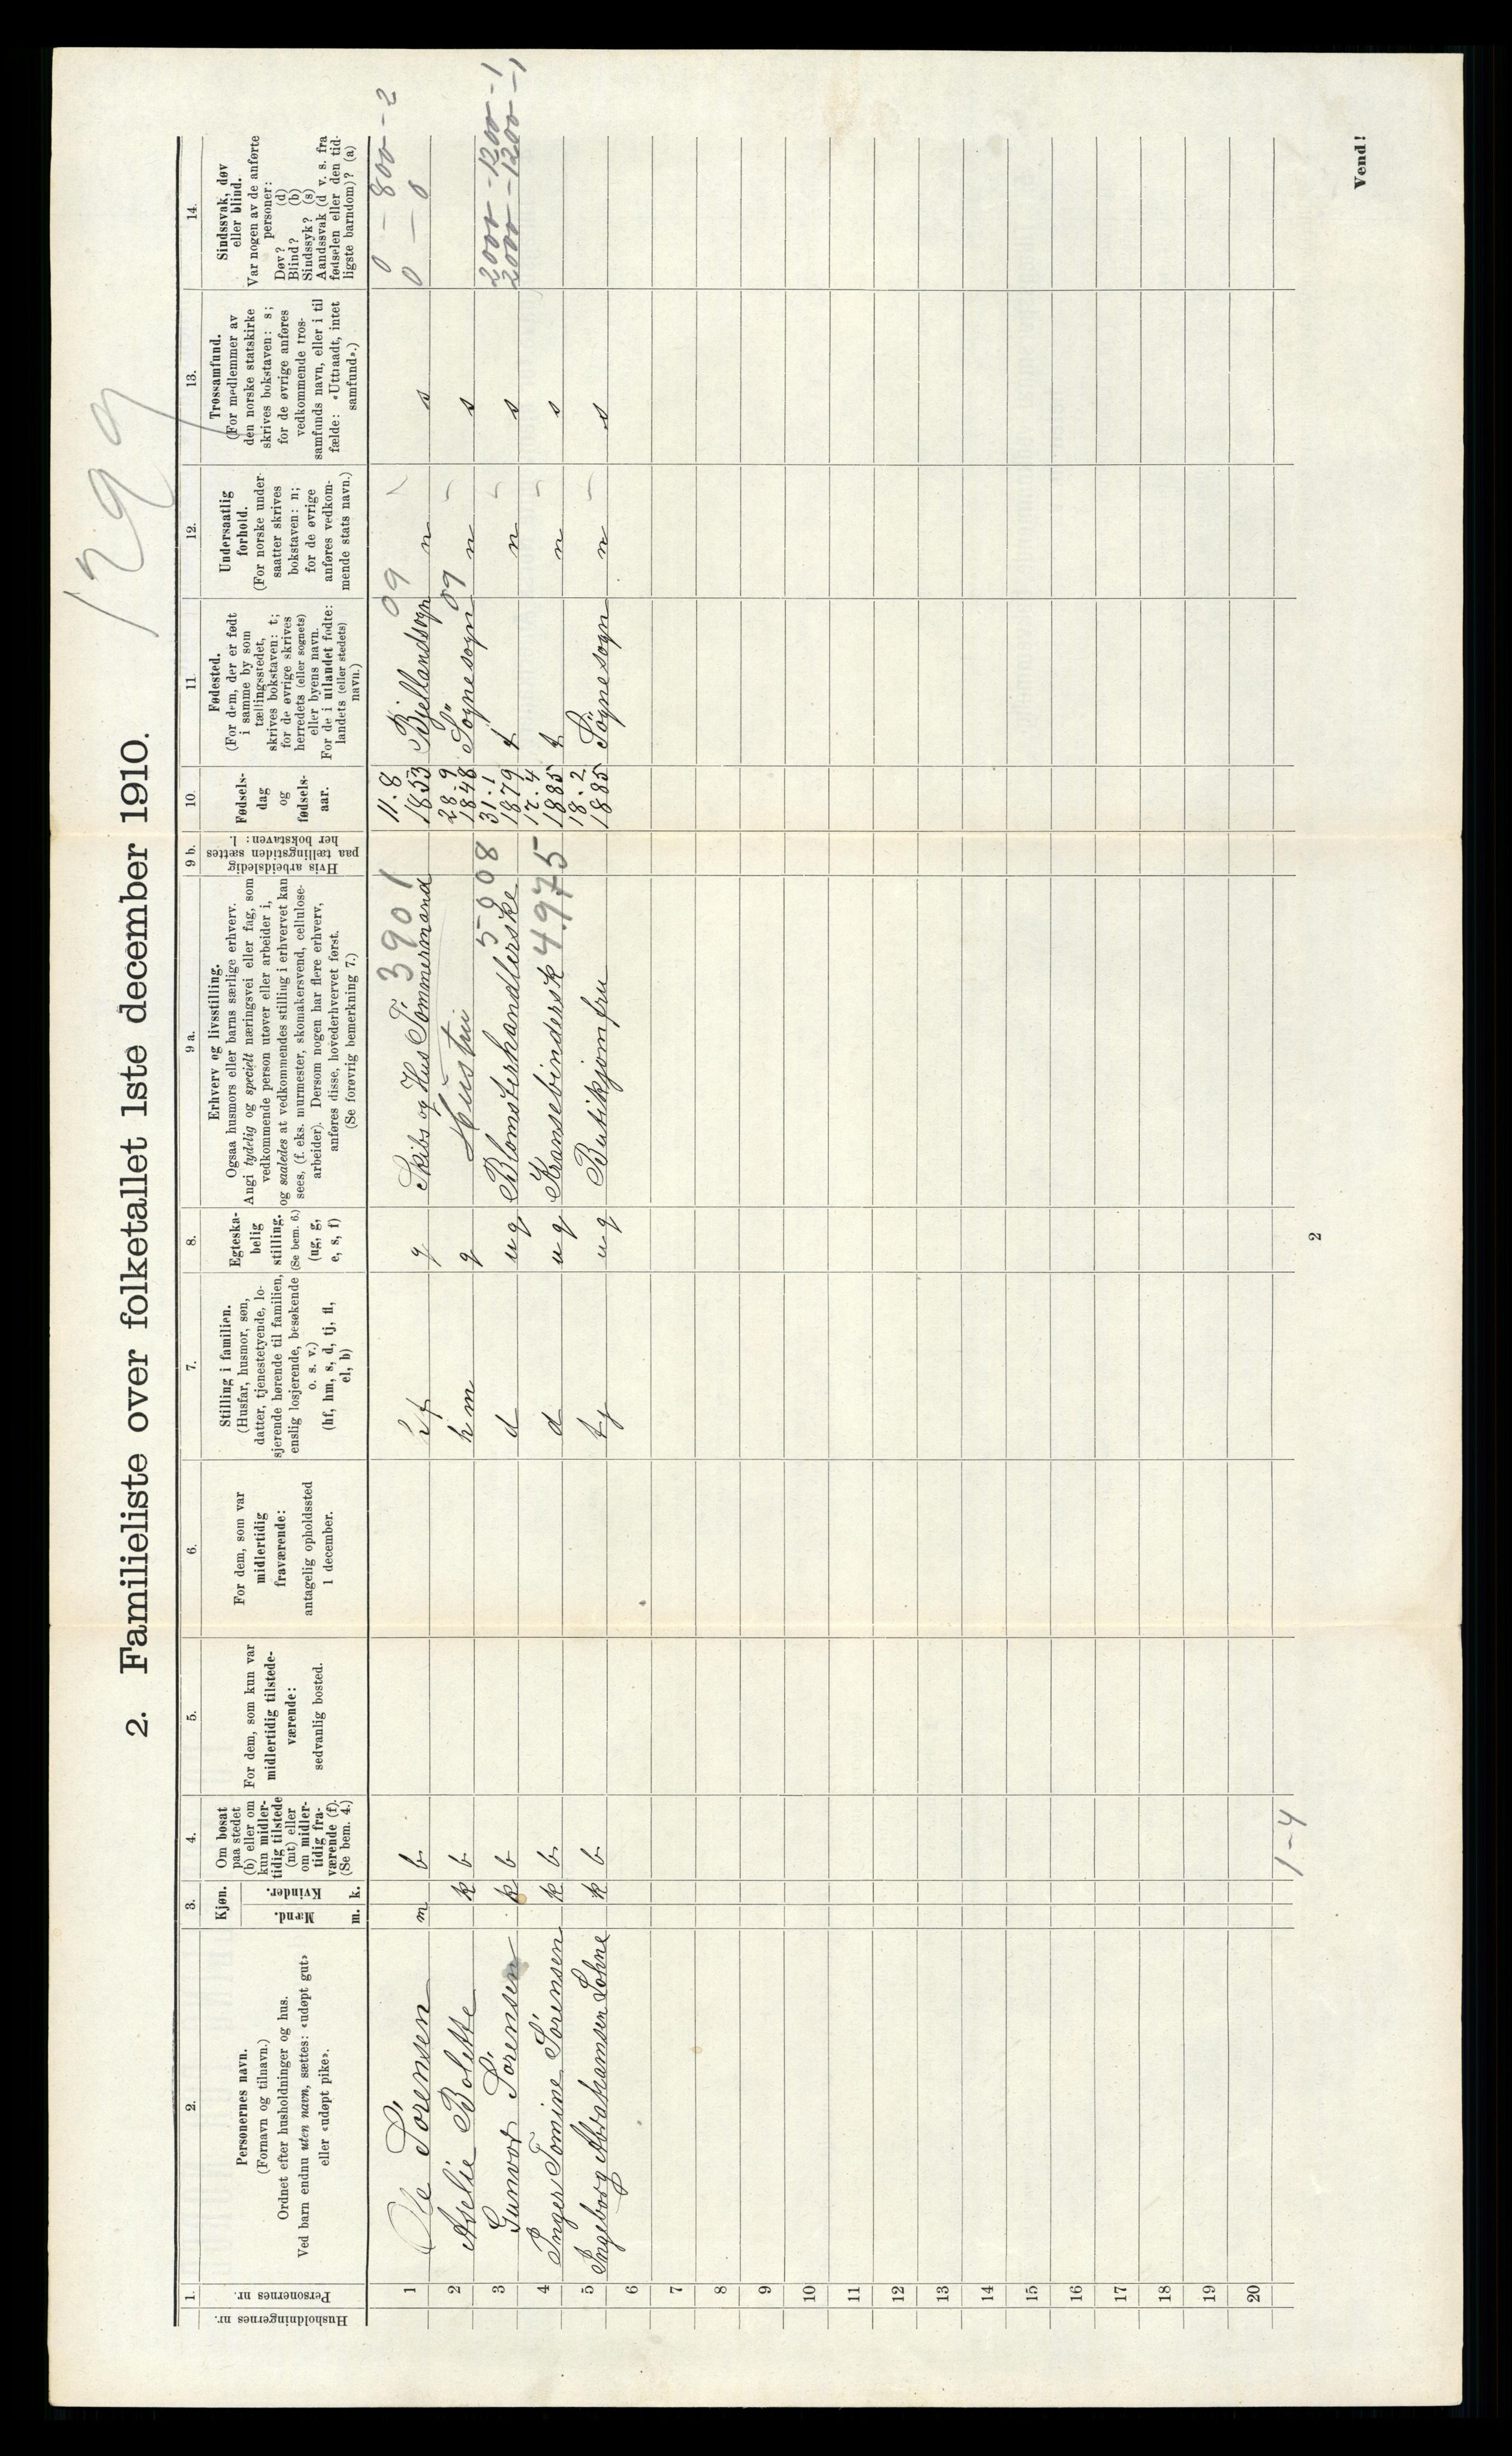 1299
2. Familieliste over folketallet 1ste december 1910.
1.
Husholdningernes nr.
Personernes nr.
2.
Personernes navn.
(Fornavn og tilnavn.)
Ordnet efter husholdninger og hus.
Ved barn endnu uten navn, sættes: «udøpt gut»
eller «udøpt pike».
3.
Kjøn.
Mænd.
Kvinder.
m. k.
4.
Om bosat
paa stedet
(b) eller om
kun midler-
tidig tilstede
(mt) eller
om midler-
tidig fra-
værende (f).
(Se bem. 4.)
5.
For dem, som kun var
midlertidig tilstede-
værende:
sedvanlig bosted.
6.
For dem, som var
midlertidig
fraværende:
antagelig opholdssted
1 december.
7.
Stilling i familien.
(Husfar, husmor, søn,
datter, tjenestetyende, lo-
sjerende hørende til familien,
enslig losjerende, besøkende
o. s. v.)
(hf, hm, s, d, tj, fl,
el, b)
8.
Egteska-
belig
stilling.
(Se bem. 6.)
(ug, g,
e, s, f)
9 a.
Erhverv og livsstilling.
Ogsaa husmors eller barns særlige erhverv.
Angi tydelig og specielt næringsvei eller fag, som
vedkommende person utøver eller arbeider i,
og saaledes at vedkommendes stilling i erhvervet kan
sees, (f. eks. murmester, skomakersvend, cellulose-
arbeider). Dersom nogen har flere erhverv,
anføres disse, hovederhvervet først.
(Se forøvrig bemerkning 7.)
9 b.
Hvis arbeidsledig
paa tællingstiden sættes
her bokstaven: l.
10.
Fødsels-
dag
og
fødsels-
aar.
11.
Fødested.
(For dem, der er født
i samme by som
tællingsstedet,
skrives bokstaven: t;
for de øvrige skrives
herredets (eller sognets)
eller byens navn.
For de i utlandet fødte:
landets (eller stedets)
navn.)
12.
Undersaatlig
forhold.
(For norske under-
saatter skrives
bokstaven: n;
for de øvrige
anføres vedkom-
mende stats navn.)
13.
Trossamfund.
(For medlemmer av
den norske statskirke
skrives bokstaven: s;
for de øvrige anføres
vedkommende tros-
samfunds navn, eller i til
fælde: «Uttraadt, intet
samfund».)
14.
Sindssvak, døv
eller blind.
Var nogen av de anførte
personer:
Døv? (d)
Blind? (b)
Sindssyk? (s)
Aandssvak (d. v. s. fra
fødselen eller den tid-
ligste barndom)? (a)
3901 11.8 09 0 - 800 - 2
1 Ole Sörensen m b hf g Skibs og Hus Tömmermand 1853 Bjellandsogn n s 0 - 0
28.9 09
2 Aselie Bolette k b hm g Hustru 1848 Sögnesogn n s
5908 31.1 2000 - 1200 - 1
3 Gunvor Sörensen k b d ug Blomsterhandlerske 1879 t n s 2000 - 1200 - 1
17.4
4 Inger Tomine Sörensen k b d ug Kransebindersk 4975 1885 t n s
18.2
5 Ingeborg Abrahamsen Lohne k b tj ug Butikjomfru 1885 Sögnesogn n s
6
7
8
9
10
11
12
13
14
15
16
17
18
19
20
1-4
2
Vend!